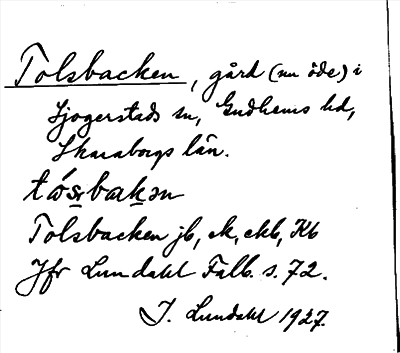 Tolsbacken, gård (nu öde) i
Sjogerstads sn, Gudhems hd,
Skaraborgs län.
Tolsbacken jb, ek, ekb, Kb
Jfr Lundahl Falb. s. 72.
I. Lundahl 1927.